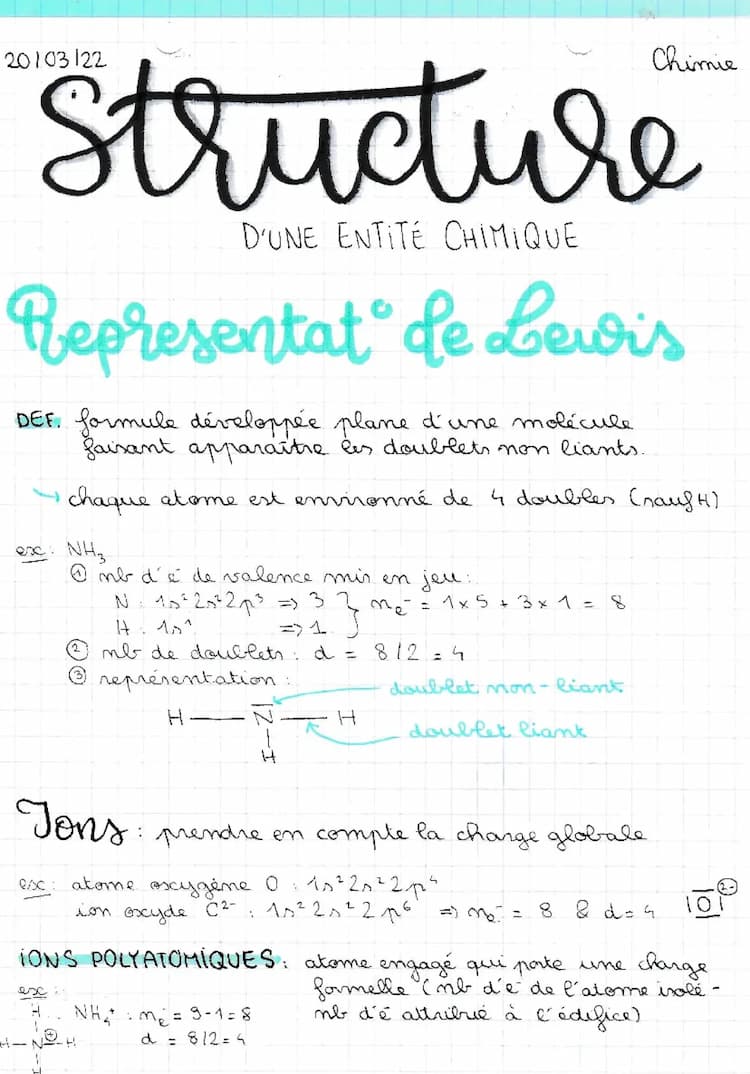 20/03/22
Chimie
Structure
D'UNE ENTITÉ CHIMIQUE
Représentat° de Lewis
DEF. formule développée plane d'une molécule
faisant apparaître les doublets non liants.
↳ chaque atome est environné de 4 doubles (sauf H)
ex: NH₃
① nb d'é de valence mis en jeu:
N : 1s² 2s² 2p³ => 3 } nₑ⁻ = 1x5 + 3x1 = 8
H : 1s¹ => 1
② nb de doublets : d = 8/2 = 4
③ représentation :
doublet non-liant
H — N — H
doublet liant
H
Ions : prendre en compte la charge globale
ex: atome oxygène O : 1s² 2s² 2p⁴
ion oxyde C²⁻ : 1s² 2s² 2p⁶ => nₑ⁻ = 8 & d=4 |O| 2-
IONS POLYATOMIQUES : atome engagé qui porte une charge
ex: formelle (nb d'é de l'atome isolé -
H NH₄⁺ : nₑ⁻ = 9-1=8 nb d'é attribué à l'édifice)
H—N⊕—H d = 8/2=4
H